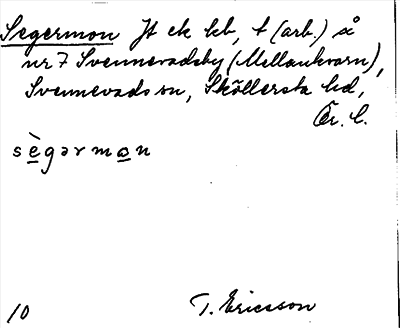 Segermon Jt ek kb, t (arb.) å
nr 7 Svennevadsby (Mellankvarn),
Svennevads sn, Sköllersta hd,
Ör. l.
sègərmon
10 T. Ericsson